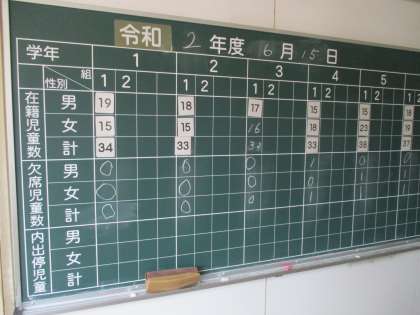 令和 2 年度 6 月 15 日
学年 1 2 3 4 5
組 性別 1 2 1 2 1 2 1 2 1 2
在籍児童数 男 19 18 17 15 15
女 15 15 16 18 23 19
計 34 33 33 38
欠席児童数 男 0 0 0 1 0
女 0 0 0 0 1
計 0 0 0 1 1
内出停児童 男
女
計